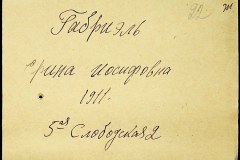 Габриэль
Ирина Иосифовна
1911.
5ая Слободская 2